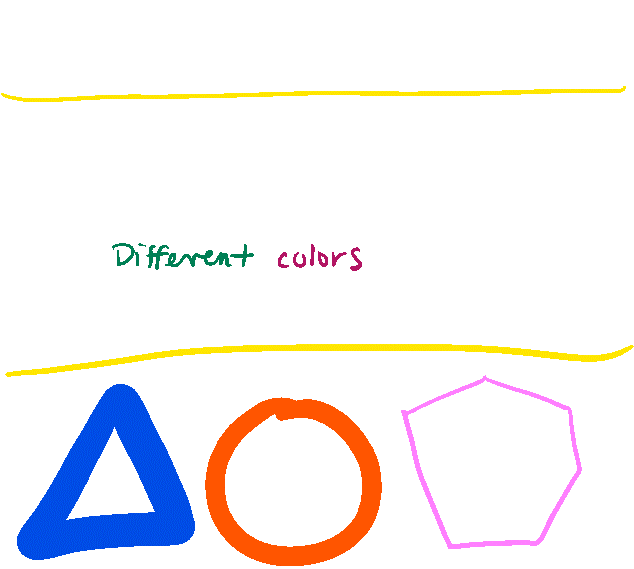 Different colors